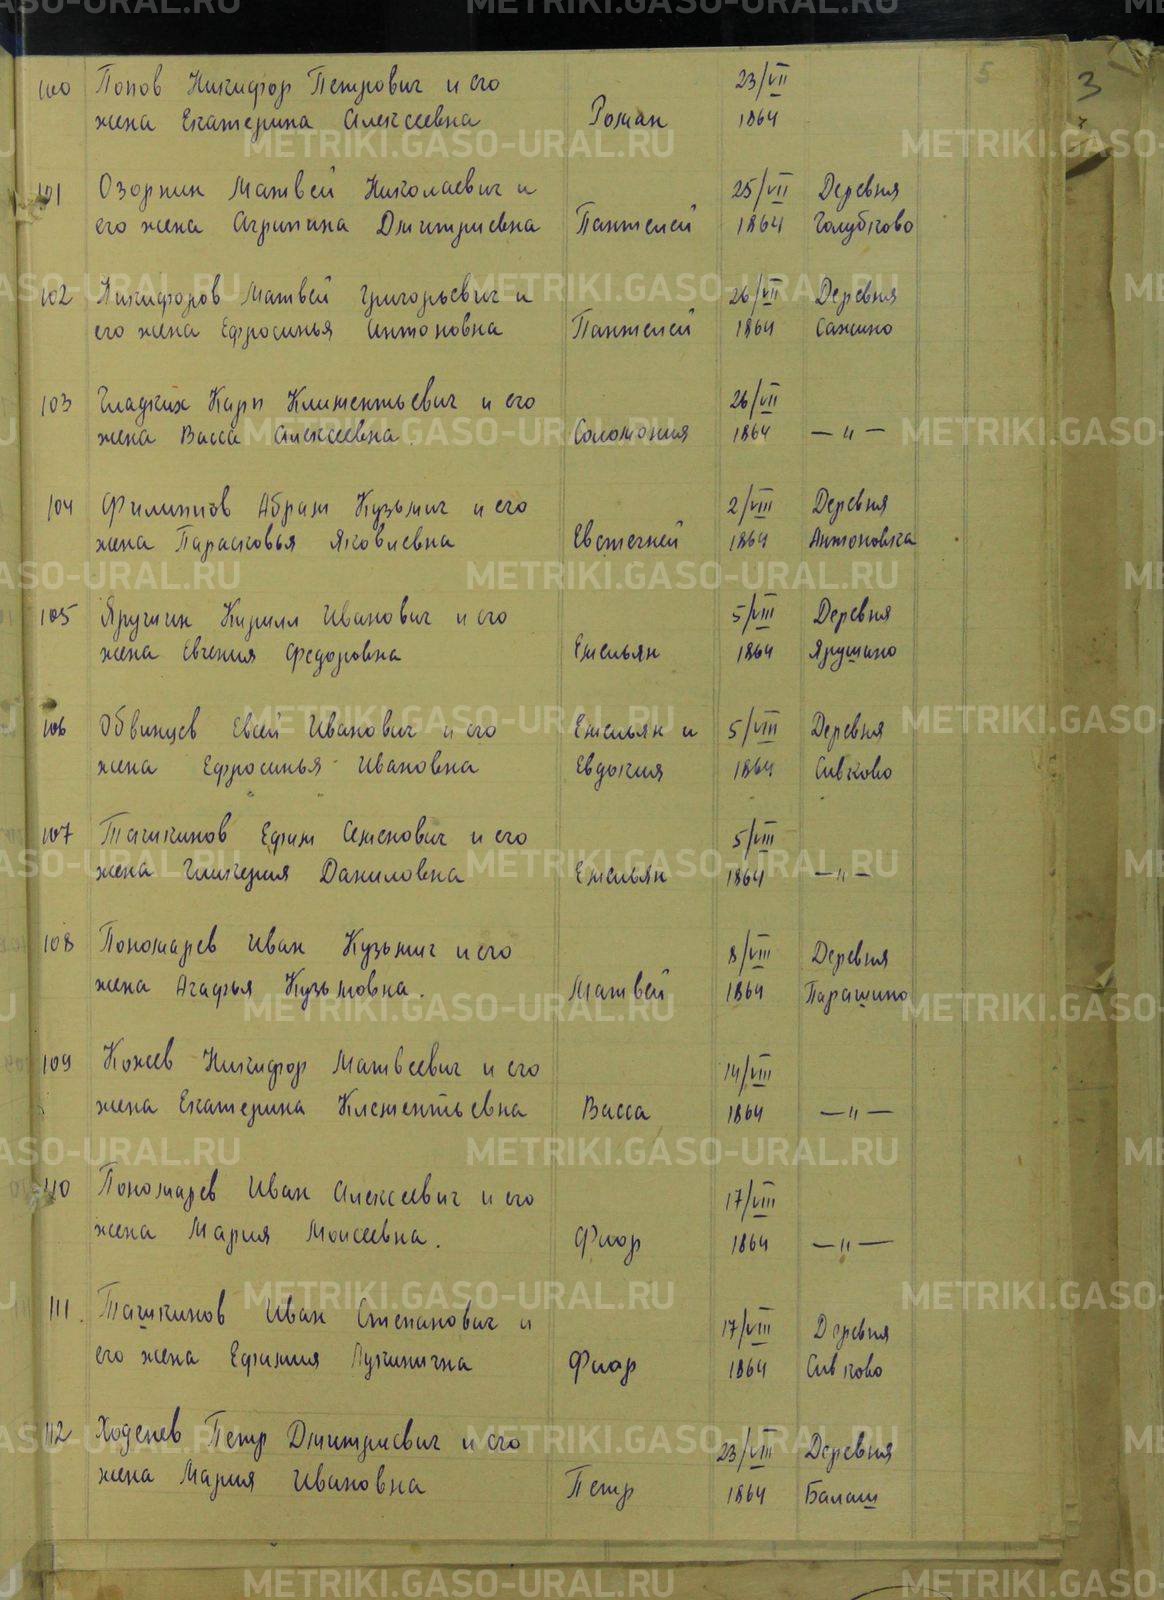 5
3
100 Попов Никифор Петрович и его
жена Екатерина Алексеевна Роман 23/VII 1864
101 Озорнин Матвей Николаевич и
его жена Агрипина Дмитриевна Пантелей 25/VII 1864 Деревня Голубково
102 Никифоров Матвей Григорьевич и
его жена Ефросинья Антоновна Пантелей 26/VII 1864 Деревня Сажино
103 Гладких Карп Климентьевич и его
жена Васса Алексеевна. Соломония 26/VII 1864 — „ —
104 Филиппов Абрам Кузьмич и его
жена Парасковья Яковлевна Евстегней 2/VIII 1864 Деревня Антоновка
105 Яружин Кирилл Иванович и его
жена Евгения Федоровна Емельян 5/VIII 1864 Деревня Ярушино
106 Обвинцев Евсей Иванович и его
жена Ефросинья Ивановна Емельян и Евдокия 5/VIII 1864 Деревня Сивково
107 Ташкинов Ефим Семенович и его
жена Гликерия Даниловна Емельян 5/VIII 1864 — „ —
108 Пономарев Иван Кузьмич и его
жена Агафья Кузьмовна. Матвей 8/VIII 1864 Деревня Парашино
109 Кожев Никифор Матвеевич и его
жена Екатерина Клементьевна Васса 14/VIII 1864 — „ —
110 Пономарев Иван Алексеевич и его
жена Мария Моисеевна. Флор 17/VIII 1864 — „ —
111. Ташкинов Иван Степанович и
его жена Ефимия Лукинична Флор 17/VIII 1864 Деревня Сивково
112 Ходенев Петр Дмитриевич и его
жена Мария Ивановна Петр 23/VIII 1864 Деревня Балаш
METRIKI.GASO-URAL.RU